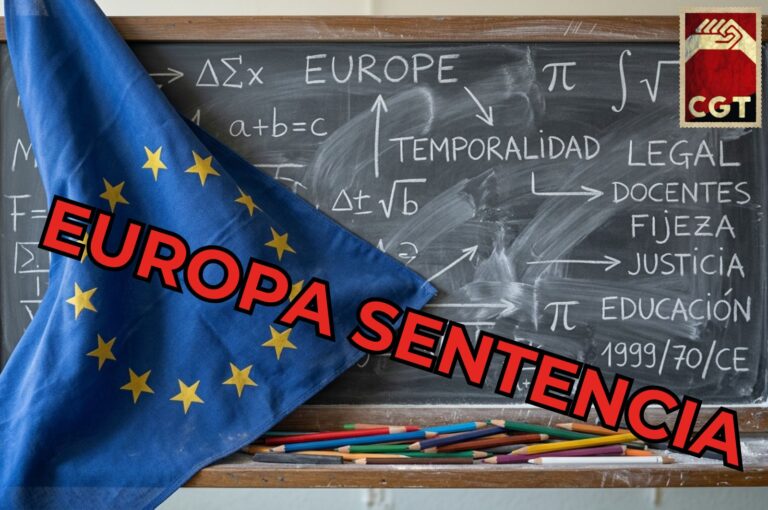 ΔΣx
EUROPE
π
∫√
CGT
a+b=c
TEMPORALIDAD
LEGAL
Δ±√b
DOCENTES
FIJEZA
F=
JUSTICIA
π
EDUCACIÓN
1999/70/CE
EUROPA SENTENCIA